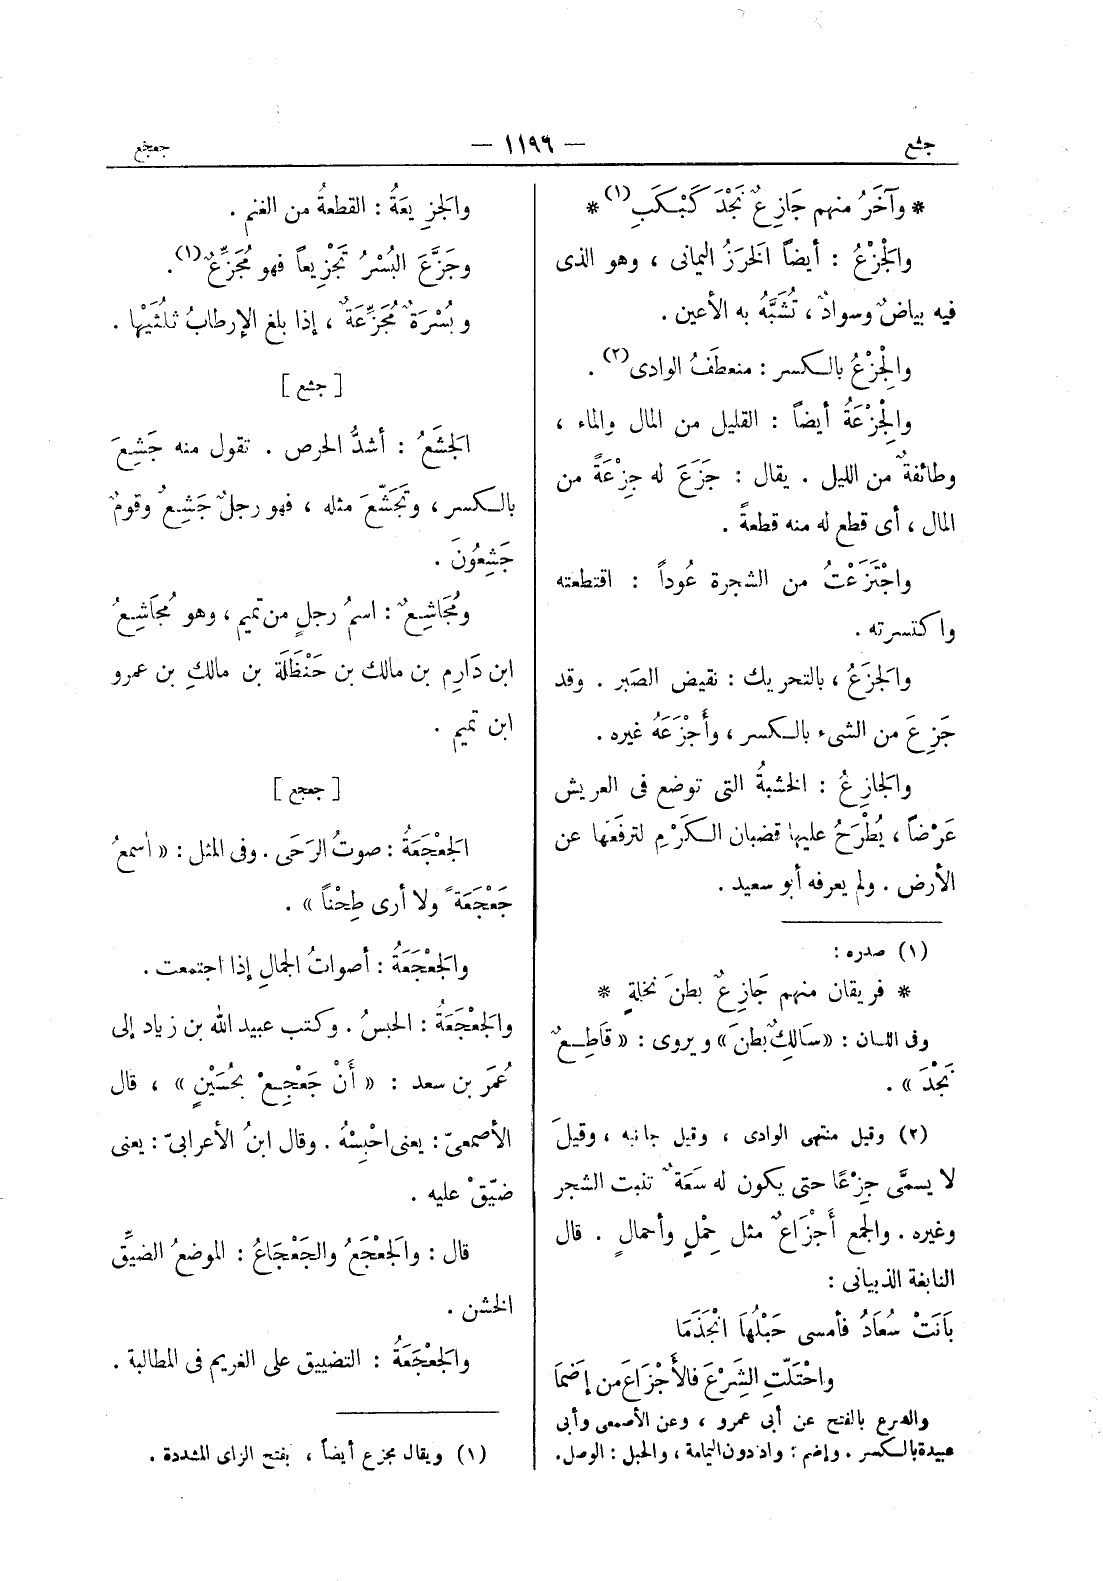 جشع — ١١٩٦ — جعجع
* وآخَرُ منهم جَازِعٌ نَجْدَ كَبْكَبِ(١) *
والجَزْعُ : أيضاً الخَرَزُ اليمانى ، وهو الذى
فيه بياضٌ وسوادٌ ، تُشَبَّهُ به الأعين .
والجِزْعُ بالكسر : منعطَفُ الوادى(٢) .
والجِزْعَةُ أيضاً : القليل من المال والماء ،
وطائفةٌ من الليل . يقال : جَزَعَ له جِزْعَةً من
المال ، أى قطع له منه قطعةً .
واجْتَزَعْتُ من الشجرة عُوداً : اقتطعته
واكتسرته .
والجَزَعُ ، بالتحريك : نقيض الصَبر . وقد
جَزِعَ من الشىء بالكسر ، وأَجْزَعَهُ غيره .
والجازِعُ : الخشبةُ التى توضع فى العريش
عَرْضاً ، يُطْرَحُ عليها قضبان الكَرْمِ لترفَعَها عن
الأرض . ولم يعرفه أبو سعيد .
(١) صدره :
* فريقان منهم جَازِعٌ بطنَ نخلةٍ *
وفى اللسان : «سَالِكٌ بطنَ» ويروى : «قَاطِعٌ
نَجْدَ» .
(٢) وقيل منتهى الوادى ، وقيل جانبه ، وقيلَ
لا يسمَّى جِزْعًا حتى يكون له سَعَةٌ تنبت الشجر
وغيره . والجمع أَجْزَاعٌ مثل حِمْلٍ وأحمالٍ . قال
النابغة الذبيانى :
بَانَتْ سُعَادُ فأمسى حَبْلُهَا انْجَذَمَا
واحْتَلَّتِ الشِرْعَ فالأَجْزَاعَ من إضَمَا
والشرع بالفتح عن أبى عمرو ، وعن الأصمعى وأبى
عبيدة بالكسر . وإضم : واد دون اليمامة ، والحبل : الوصل .
والجزِيعَةُ : القطعةُ من الغنم .
وجَزَّعَ البُسْرُ تَجْزِيعاً فهو مُجَزِّعٌ(١) .
وبُسْرَةٌ مُجَزِّعَةٌ ، إذا بلغ الإرطابُ ثلُثَيْها .
[ جشع ]
الجَشَعُ : أشدُّ الحرص . تقول منه جَشِعَ
بالكسر ، وتَجَشَّعَ مثله ، فهو رجلٌ جَشِعٌ وقومٌ
جَشِعُونَ .
ومُجَاشِعٌ : اسمُ رجلٍ من تميم ، وهو مُجَاشِعُ
ابن دَارِم بن مالك بن حَنْظَلَة بن مالكِ بن عمرو
ابن تميم .
[ جعجع ]
الجَعْجَعَةُ : صوتُ الرَحَى . وفى المثل : « أسمعُ
جَعْجَعَةً ولا أرى طِحْناً » .
والجَعْجَعَةُ : أصواتُ الجمالِ إذا اجتمعت .
والجَعْجَعَةُ : الحبسُ . وكتب عبيد الله بن زياد إلى
عُمَر بن سعد : « أَنْ جَعْجِعْ بحُسَيْنٍ » ، قال
الأصمعىّ : يعنى احْبِسْهُ . وقال ابنُ الأعرابىّ : يعنى
ضيّقْ عليه .
قال : والجَعْجَعُ والجَعْجَاعُ : الموضعُ الضيِّق
الخشن .
والجَعْجَعَةُ : التضييق على الغريم فى المطالبة .
(١) ويقال مجزع أيضاً ، بفتح الزاى المشددة .